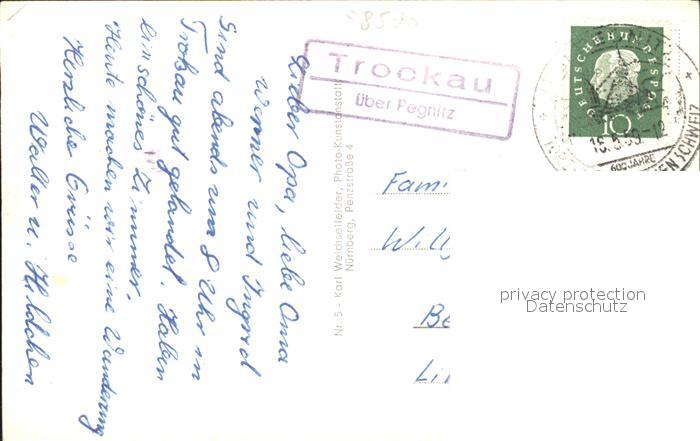 8570
Trockau
über Pegnitz
DEUTSCHE BUNDESPOST
10
600 JAHRE
Lieber Opa, liebe Oma
Werner und Ingrid
Sind abends um 8 Uhr in
Trokau gut gelandet. Haben
ein schönes Zimmer.
Heute machen wir eine Wanderung
Herzliche Grüsse
Walter u. Hildchen
Nr. 5 - Karl Weichselfelder, Photo-Kunstanstalt
Nürnberg, Penzstraße 4
Fami
Will
Be
Li
privacy protection
Datenschutz